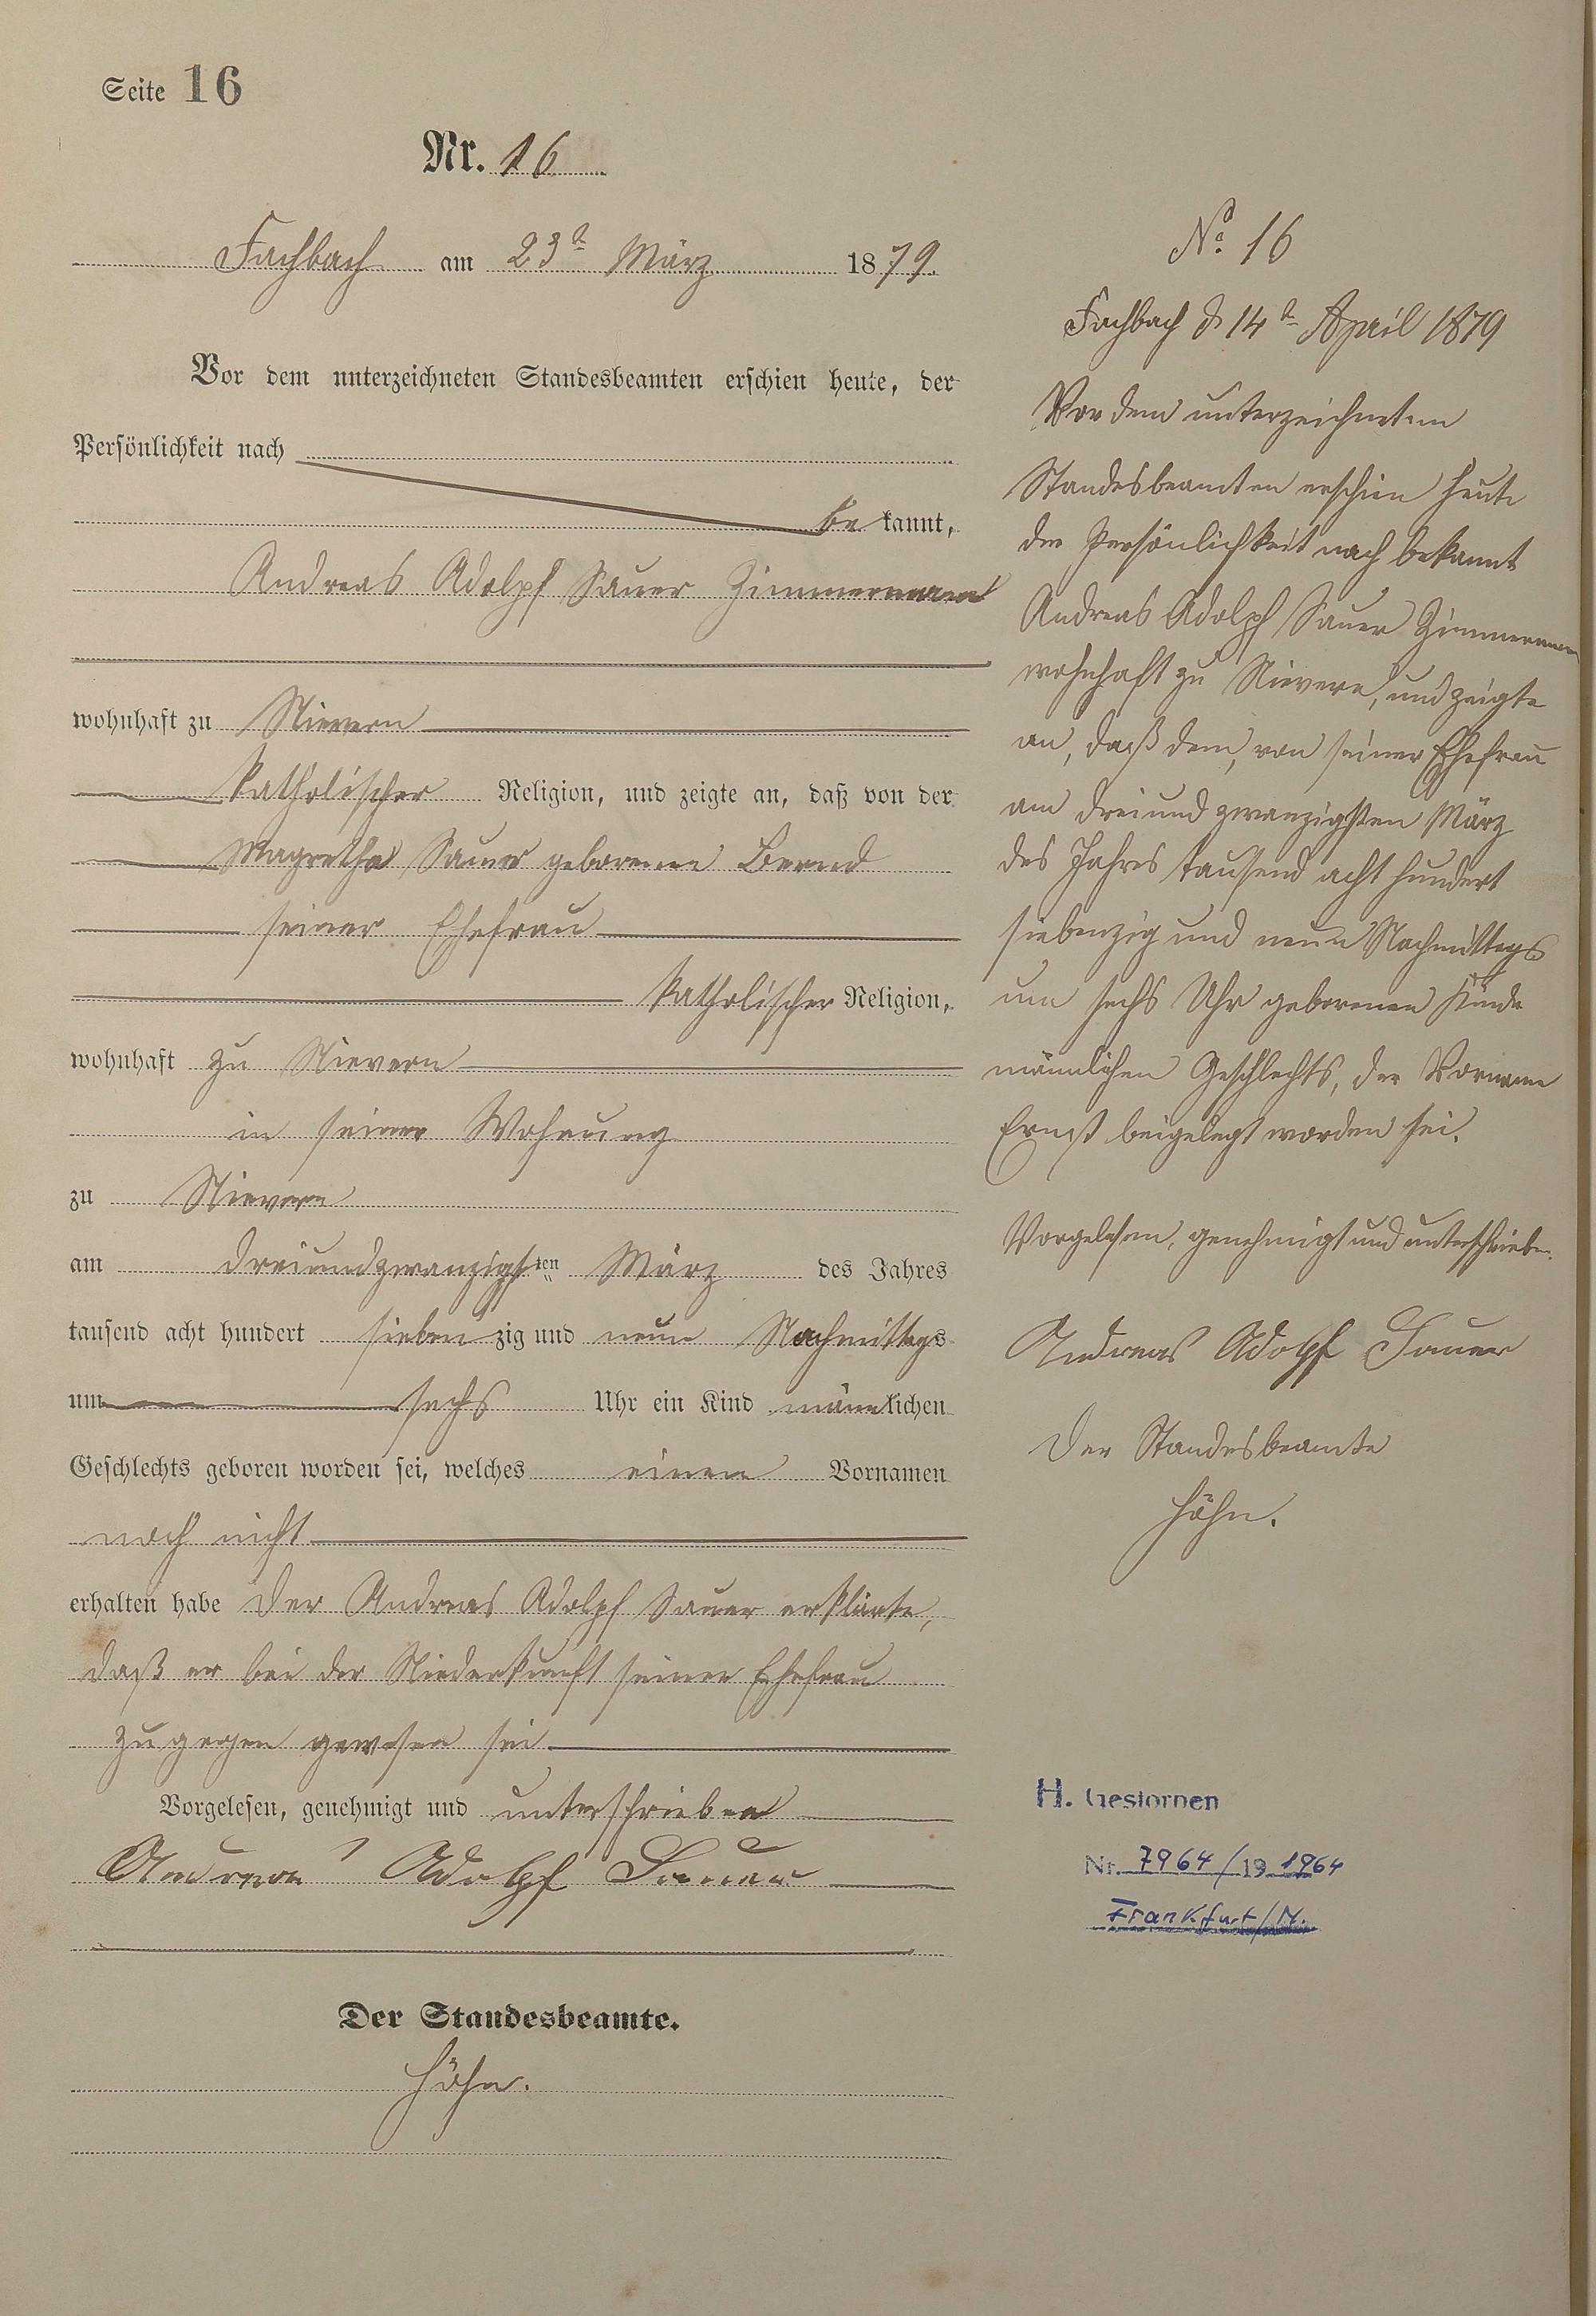 Seite 16
Nr. 16
Fachbach am 23t März 1879.
Vor dem unterzeichneten Standesbeamten erschien heute, der
Persönlichkeit nach
be kannt,
Andreas Adolph Sauer Zimmermann
wohnhaft zu Nievern
katholischer Religion, und zeigte an, daß von der
Magretha Sauer geborenen Bernd
seiner Ehefrau
katholischer Religion,
wohnhaft zu Nievern
in seiner Wohnung
zu Nievern
am dreiundzwanzigsten März des Jahres
tausend acht hundert sieben zig und neun Nachmittags
um sechs Uhr ein Kind männlichen
Geschlechts geboren worden sei, welches einen Vornamen
noch nicht
erhalten habe Der Andreas Adolph Sauer erklärte,
daß er bei der Niederkunft seiner Ehefrau
zugegen gewesen sei
Vorgelesen, genehmigt und unterschrieben
Andreas Adolpf Sauer
Der Standesbeamte.
Höhn.
No. 16
Fachbach d 14t April 1879
Vor dem unterzeichnetem
Standesbeamten erschien heute
der Persönlichkeit nach bekannt
Andreas Adolph Sauer Zimmermann
wohnhaft zu Nievern, und zeigte
an, daß dem, von seiner Ehefrau
am dreiundzwanzigsten März
des Jahres tausend acht hundert
siebenzig und neun Nachmittags
um sechs Uhr geborenen Kinde
männlichen Geschlechts, der Vorname
Ernst beigelegt worden sei.
Vorgelesen, genehmigt und unterschrieben.
Andreas Adolpf Sauer
Der Standesbeamte
Höhn.
H. Gestorben
Nr. 7964/19 1964
Frankfurt/M.